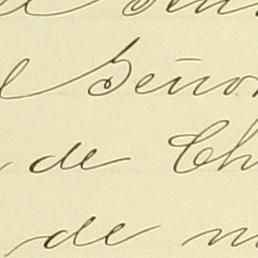 Señor
de Ch
de m